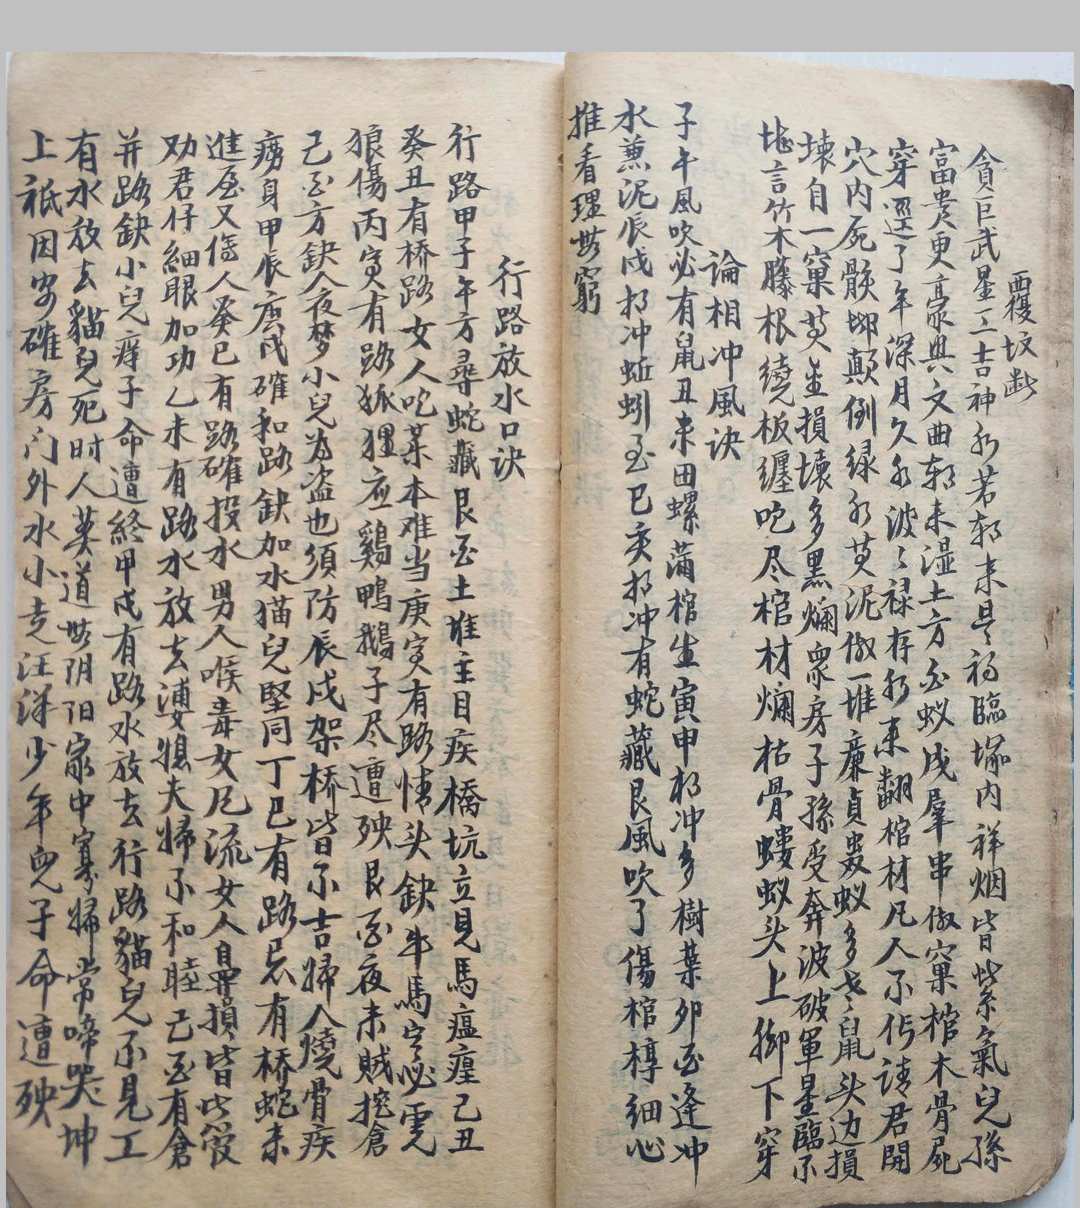 覆坟断
貪巨武星三吉神水若朝来是福臨塚内祥烟皆紫氣兒孫
富贵更豪興文曲朝来湿土方白蚁成羣串做窠棺木骨屍
穿遲了年深月久水波〻禄存水来翻棺材凡人不作请君開
穴内屍骸颠倒绿水黄泥做一堆廉貞蚁多老鼠头边損
壊自一窠黄金損壊多黑爛衆房子孫受奔波破軍星臨不
堪言竹木籐根繞板纏吃尽棺材爛枯骨螻蚁头上脚下穿
論相冲風诀
子午風吹必有鼠丑未田螺蒲棺生寅申相冲多樹葉卯酉逢冲
水兼泥辰戌相冲蚯蚓至巳亥相冲有蛇藏艮風吹了傷棺椁细心
推看理無窮
行路放水口诀
行路甲子午方尋蛇藏艮酉土堆主目疾橋坑立見馬瘟瘽己丑
癸丑有桥路女人吃某本难当庚寅有路情头缺牛馬定必虎
狼傷丙寅有路狐狸应鷄鴨鵝子尽遭殃艮酉夜来贼挖倉
己酉方缺人夜梦小兒为盗也须防辰戌架桥皆不吉婦人燒骨疾
痨身甲辰庚戌碓和路缺加水猫兒堅同丁巳有路忌有桥蛇来
進屋又傷人癸巳有路碓投水男人喉毒女凡流女人鼻損皆此管
劝君仔細眼加功乙未有路水放去婆媳夫婦不和睦己酉有倉
并路缺小兒痒子命遭終甲戌有路水放去行路貓兒不見工
有水放去貓兒死时人莫道無阴阳家中寡婦常啼哭坤
上祗因安碓房门外水小走汪洋少年兒子命遭殃